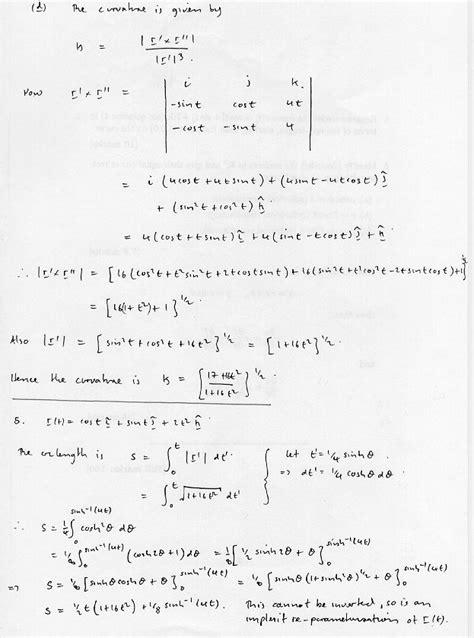 (d) The curvature is given by
κ = |r' × r''| / |r'|³.
Now r' × r'' = | i j k |
| -sint cost 4t |
| -cost -sint 4 |
= i (4cost + 4t sint) + (4sint - 4t cost) ĵ
+ (sin²t + cos²t) k̂
= 4(cost + t sint) î + 4(sint - t cost) ĵ + k̂
∴ |r' × r''| = [16(cos²t + t² sin²t + 2t cost sint) + 16(sin²t + t² cos²t - 2t sint cost) + 1]^½
= [16(1 + t²) + 1]^½.
Also |r'| = [sin²t + cos²t + 16t²]^½ = [1 + 16t²]^½.
Hence the curvature is κ = [(17 + 16t²) / (1 + 16t²)]^½.
5. r(t) = cost î + sint ĵ + 2t² k̂
The arclength is s = ∫₀^t |r'| dt' { let t' = ¼ sinhθ
= ∫₀^t √(1 + 16t'²) dt' { => dt' = ¼ coshθ dθ
∴ s = ¼ ∫₀^(sinh⁻¹(4t)) cosh²θ dθ
= ⅛ ∫₀^(sinh⁻¹(4t)) (cosh2θ + 1) dθ = ⅛ [½ sinh2θ + θ]₀^(sinh⁻¹(4t))
=> s = ⅛ [sinhθ coshθ + θ]₀^(sinh⁻¹(4t)) = ⅛ [sinhθ (1 + sinh²θ)^½ + θ]₀^(sinh⁻¹(4t))
s = ½ t (1 + 16t²)^½ + ⅛ sinh⁻¹(4t). This cannot be inverted, so is an
implicit re-parameterisation of r(t).